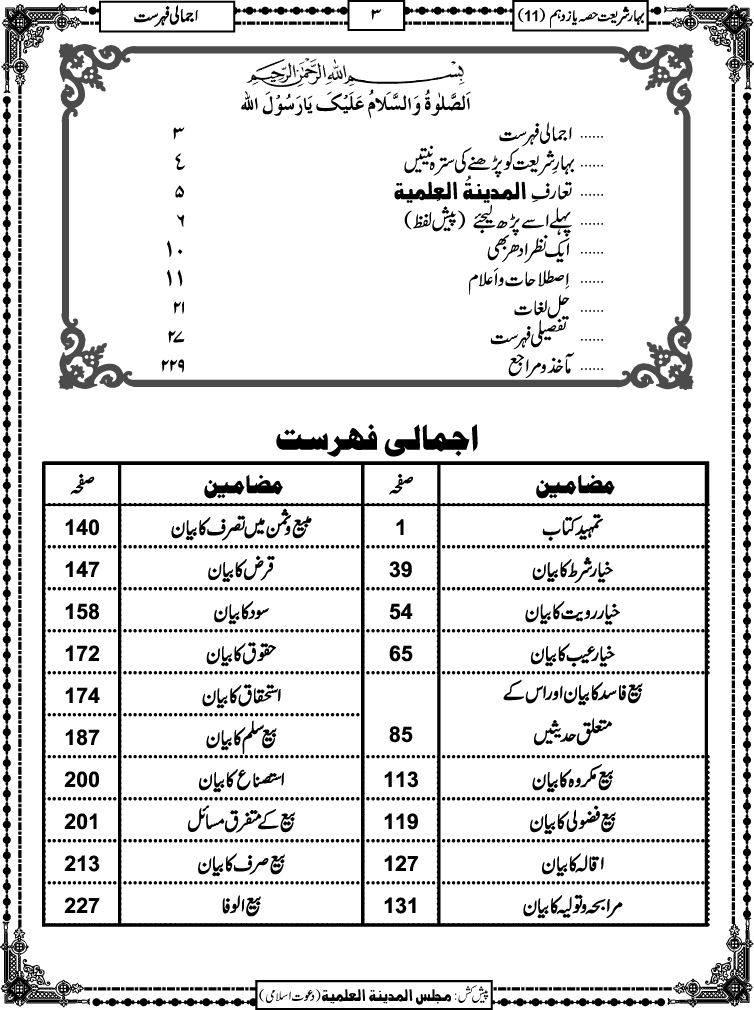 بہارِشریعت حصہ یازدہم (11)
۳
اجمالی فہرست
بِسْمِ اللهِ الرَّحْمٰنِ الرَّحِیْمِ
اَلصَّلٰوۃُ وَالسَّلَامُ عَلَیْکَ یَارَسُوْلَ اللہ
...... اجمالی فہرست ۳
...... بہارِشریعت کو پڑھنے کی سترہ نیتیں ٤
...... تعارفِ المدینۃُ العِلمیۃ ۵
...... پہلے اسے پڑھ لیجئے (پیش لفظ) ۶
...... ایک نظر ادھر بھی ۱۰
...... اِصطلاحات و اَعلام ۱۱
...... حل لغات ۲۱
...... تفصیلی فہرست ۲۷
...... مآخذ و مراجع ۲۲۹
اجمالی فہرست
مضامین صفحہ مضامین صفحہ
تمہید کتاب 1 مبیع و ثمن میں تصرف کا بیان 140
خیار شرط کا بیان 39 قرض کا بیان 147
خیار رویت کا بیان 54 سود کا بیان 158
خیار عیب کا بیان 65 حقوق کا بیان 172
بیع فاسد کا بیان اور اس کے استحقاق کا بیان 174
متعلق حدیثیں 85 بیع سلم کا بیان 187
بیع مکروہ کا بیان 113 استصناع کا بیان 200
بیع فضولی کا بیان 119 بیع کے متفرق مسائل 201
اقالہ کا بیان 127 بیع صرف کا بیان 213
مرابحہ و تولیہ کا بیان 131 بیع الوفا 227
پیش کش: مجلس المدینۃ العلمیۃ (دعوت اسلامی)